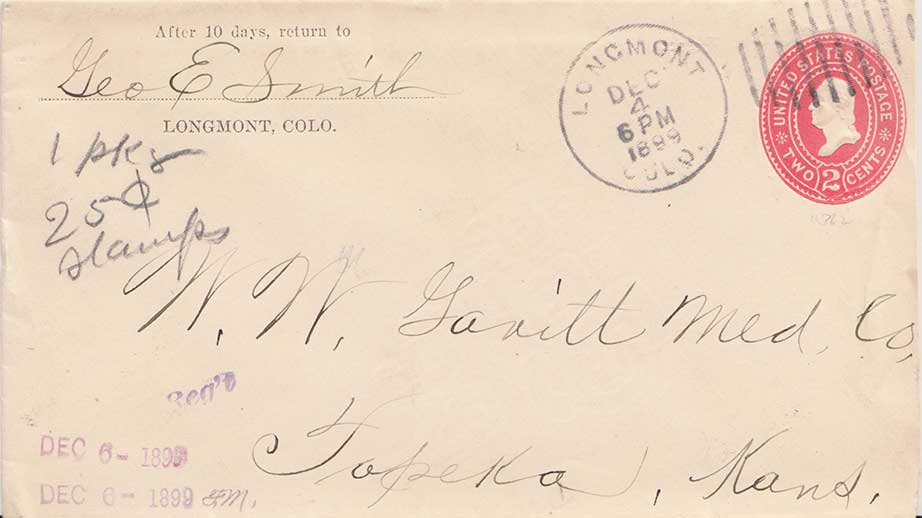 After 10 days, return to
Geo E Smith
LONGMONT, COLO.
LONGMONT
DEC
4
6 PM
1899
COLO.
UNITED STATES POSTAGE
TWO 2 CENTS
1 pkg
25¢
stamps
W. W. Gavitt Med. Co,
Rec'd
Topeka, Kans.
DEC 6- 1899
DEC 6- 1899